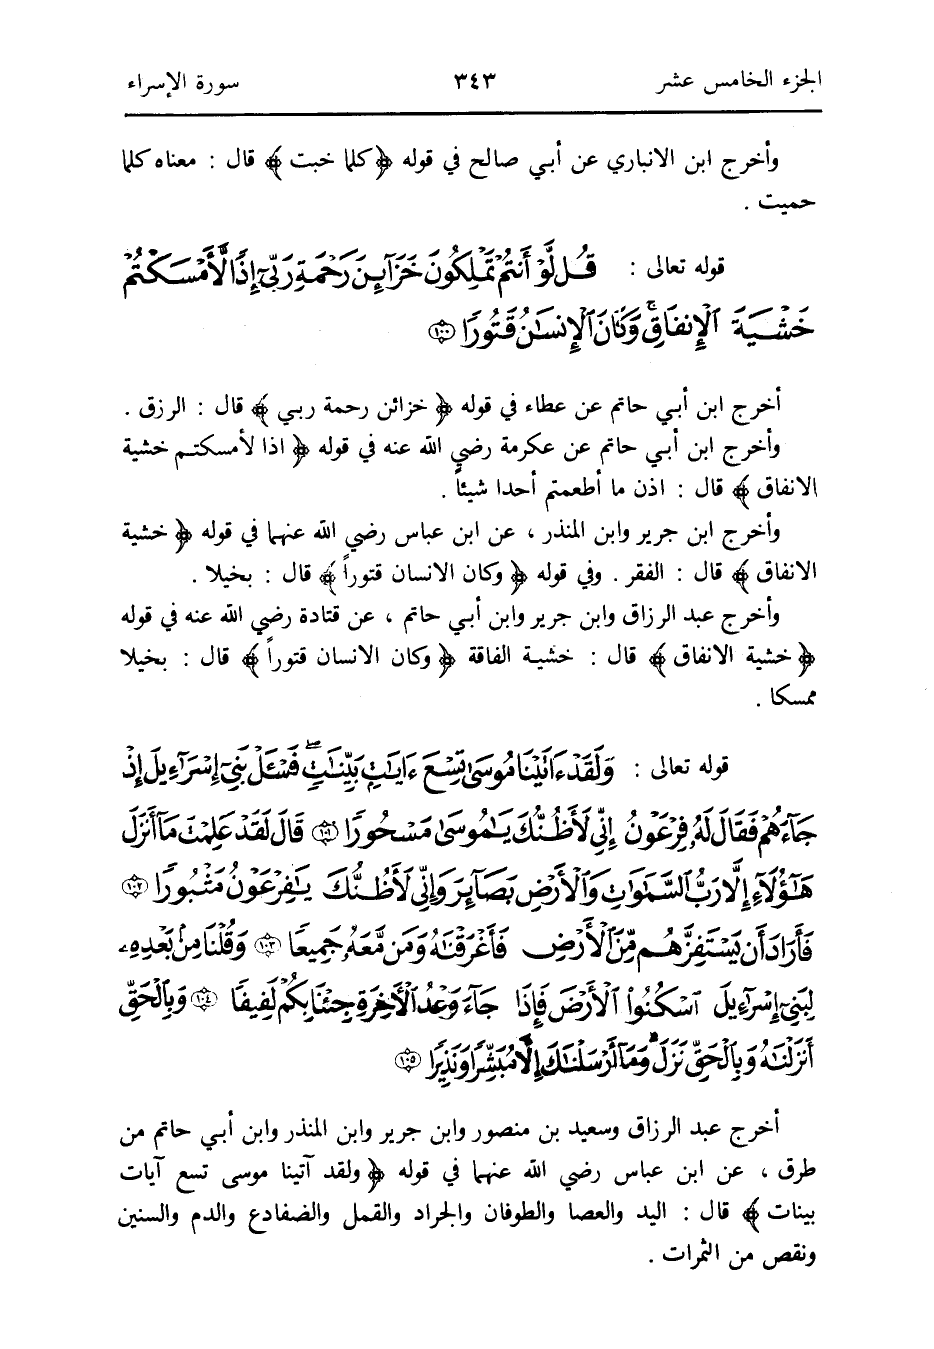 الجزء الخامس عشر ٣٤٣ سورة الإسراء
وأخرج ابن الانباري عن أبي صالح في قوله ﴿كلما خبت﴾ قال : معناه كلما
حميت .
قوله تعالى : قُل لَّوْ أَنتُمْ تَمْلِكُونَ خَزَآئِنَ رَحْمَةِ رَبِّىٓ إِذًا لَّأَمْسَكْتُمْ
خَشْيَةَ ٱلْإِنفَاقِ ۚ وَكَانَ ٱلْإِنسَٰنُ قَتُورًا ﴿١٠٠﴾
أخرج ابن أبي حاتم عن عطاء في قوله ﴿ خزائن رحمة ربي ﴾ قال : الرزق .
وأخرج ابن أبي حاتم عن عكرمة رضي الله عنه في قوله ﴿ اذا لأمسكتم خشية
الانفاق ﴾ قال : اذن ما أطعمتم أحدا شيئاً .
وأخرج ابن جرير وابن المنذر ، عن ابن عباس رضي الله عنهما في قوله ﴿ خشية
الانفاق ﴾ قال : الفقر . وفي قوله ﴿ وكان الانسان قتوراً ﴾ قال : بخيلا .
وأخرج عبد الرزاق وابن جرير وابن أبي حاتم ، عن قتادة رضي الله عنه في قوله
﴿ خشية الانفاق ﴾ قال : خشية الفاقة ﴿ وكان الانسان قتوراً ﴾ قال : بخيلا
ممسكا .
قوله تعالى : وَلَقَدْ ءَاتَيْنَا مُوسَىٰ تِسْعَ ءَايَٰتٍۭ بَيِّنَٰتٍ ۖ فَسْـَٔلْ بَنِىٓ إِسْرَٰٓءِيلَ إِذْ
جَآءَهُمْ فَقَالَ لَهُۥ فِرْعَوْنُ إِنِّى لَأَظُنُّكَ يَٰمُوسَىٰ مَسْحُورًا ﴿١٠١﴾ قَالَ لَقَدْ عَلِمْتَ مَآ أَنزَلَ
هَٰٓؤُلَآءِ إِلَّا رَبُّ ٱلسَّمَٰوَٰتِ وَٱلْأَرْضِ بَصَآئِرَ وَإِنِّى لَأَظُنُّكَ يَٰفِرْعَوْنُ مَثْبُورًا ﴿١٠٢﴾
فَأَرَادَ أَن يَسْتَفِزَّهُم مِّنَ ٱلْأَرْضِ فَأَغْرَقْنَٰهُ وَمَن مَّعَهُۥ جَمِيعًا ﴿١٠٣﴾ وَقُلْنَا مِنۢ بَعْدِهِۦ
لِبَنِىٓ إِسْرَٰٓءِيلَ ٱسْكُنُوا۟ ٱلْأَرْضَ فَإِذَا جَآءَ وَعْدُ ٱلْأٓخِرَةِ جِئْنَا بِكُمْ لَفِيفًا ﴿١٠٤﴾ وَبِٱلْحَقِّ
أَنزَلْنَٰهُ وَبِٱلْحَقِّ نَزَلَ ۗ وَمَآ أَرْسَلْنَٰكَ إِلَّا مُبَشِّرًا وَنَذِيرًا ﴿١٠٥﴾
أخرج عبد الرزاق وسعيد بن منصور وابن جرير وابن المنذر وابن أبي حاتم من
طرق ، عن ابن عباس رضي الله عنهما في قوله ﴿ ولقد آتينا موسى تسع آيات
بينات ﴾ قال : اليد والعصا والطوفان والجراد والقمل والضفادع والدم والسنين
ونقص من الثمرات .